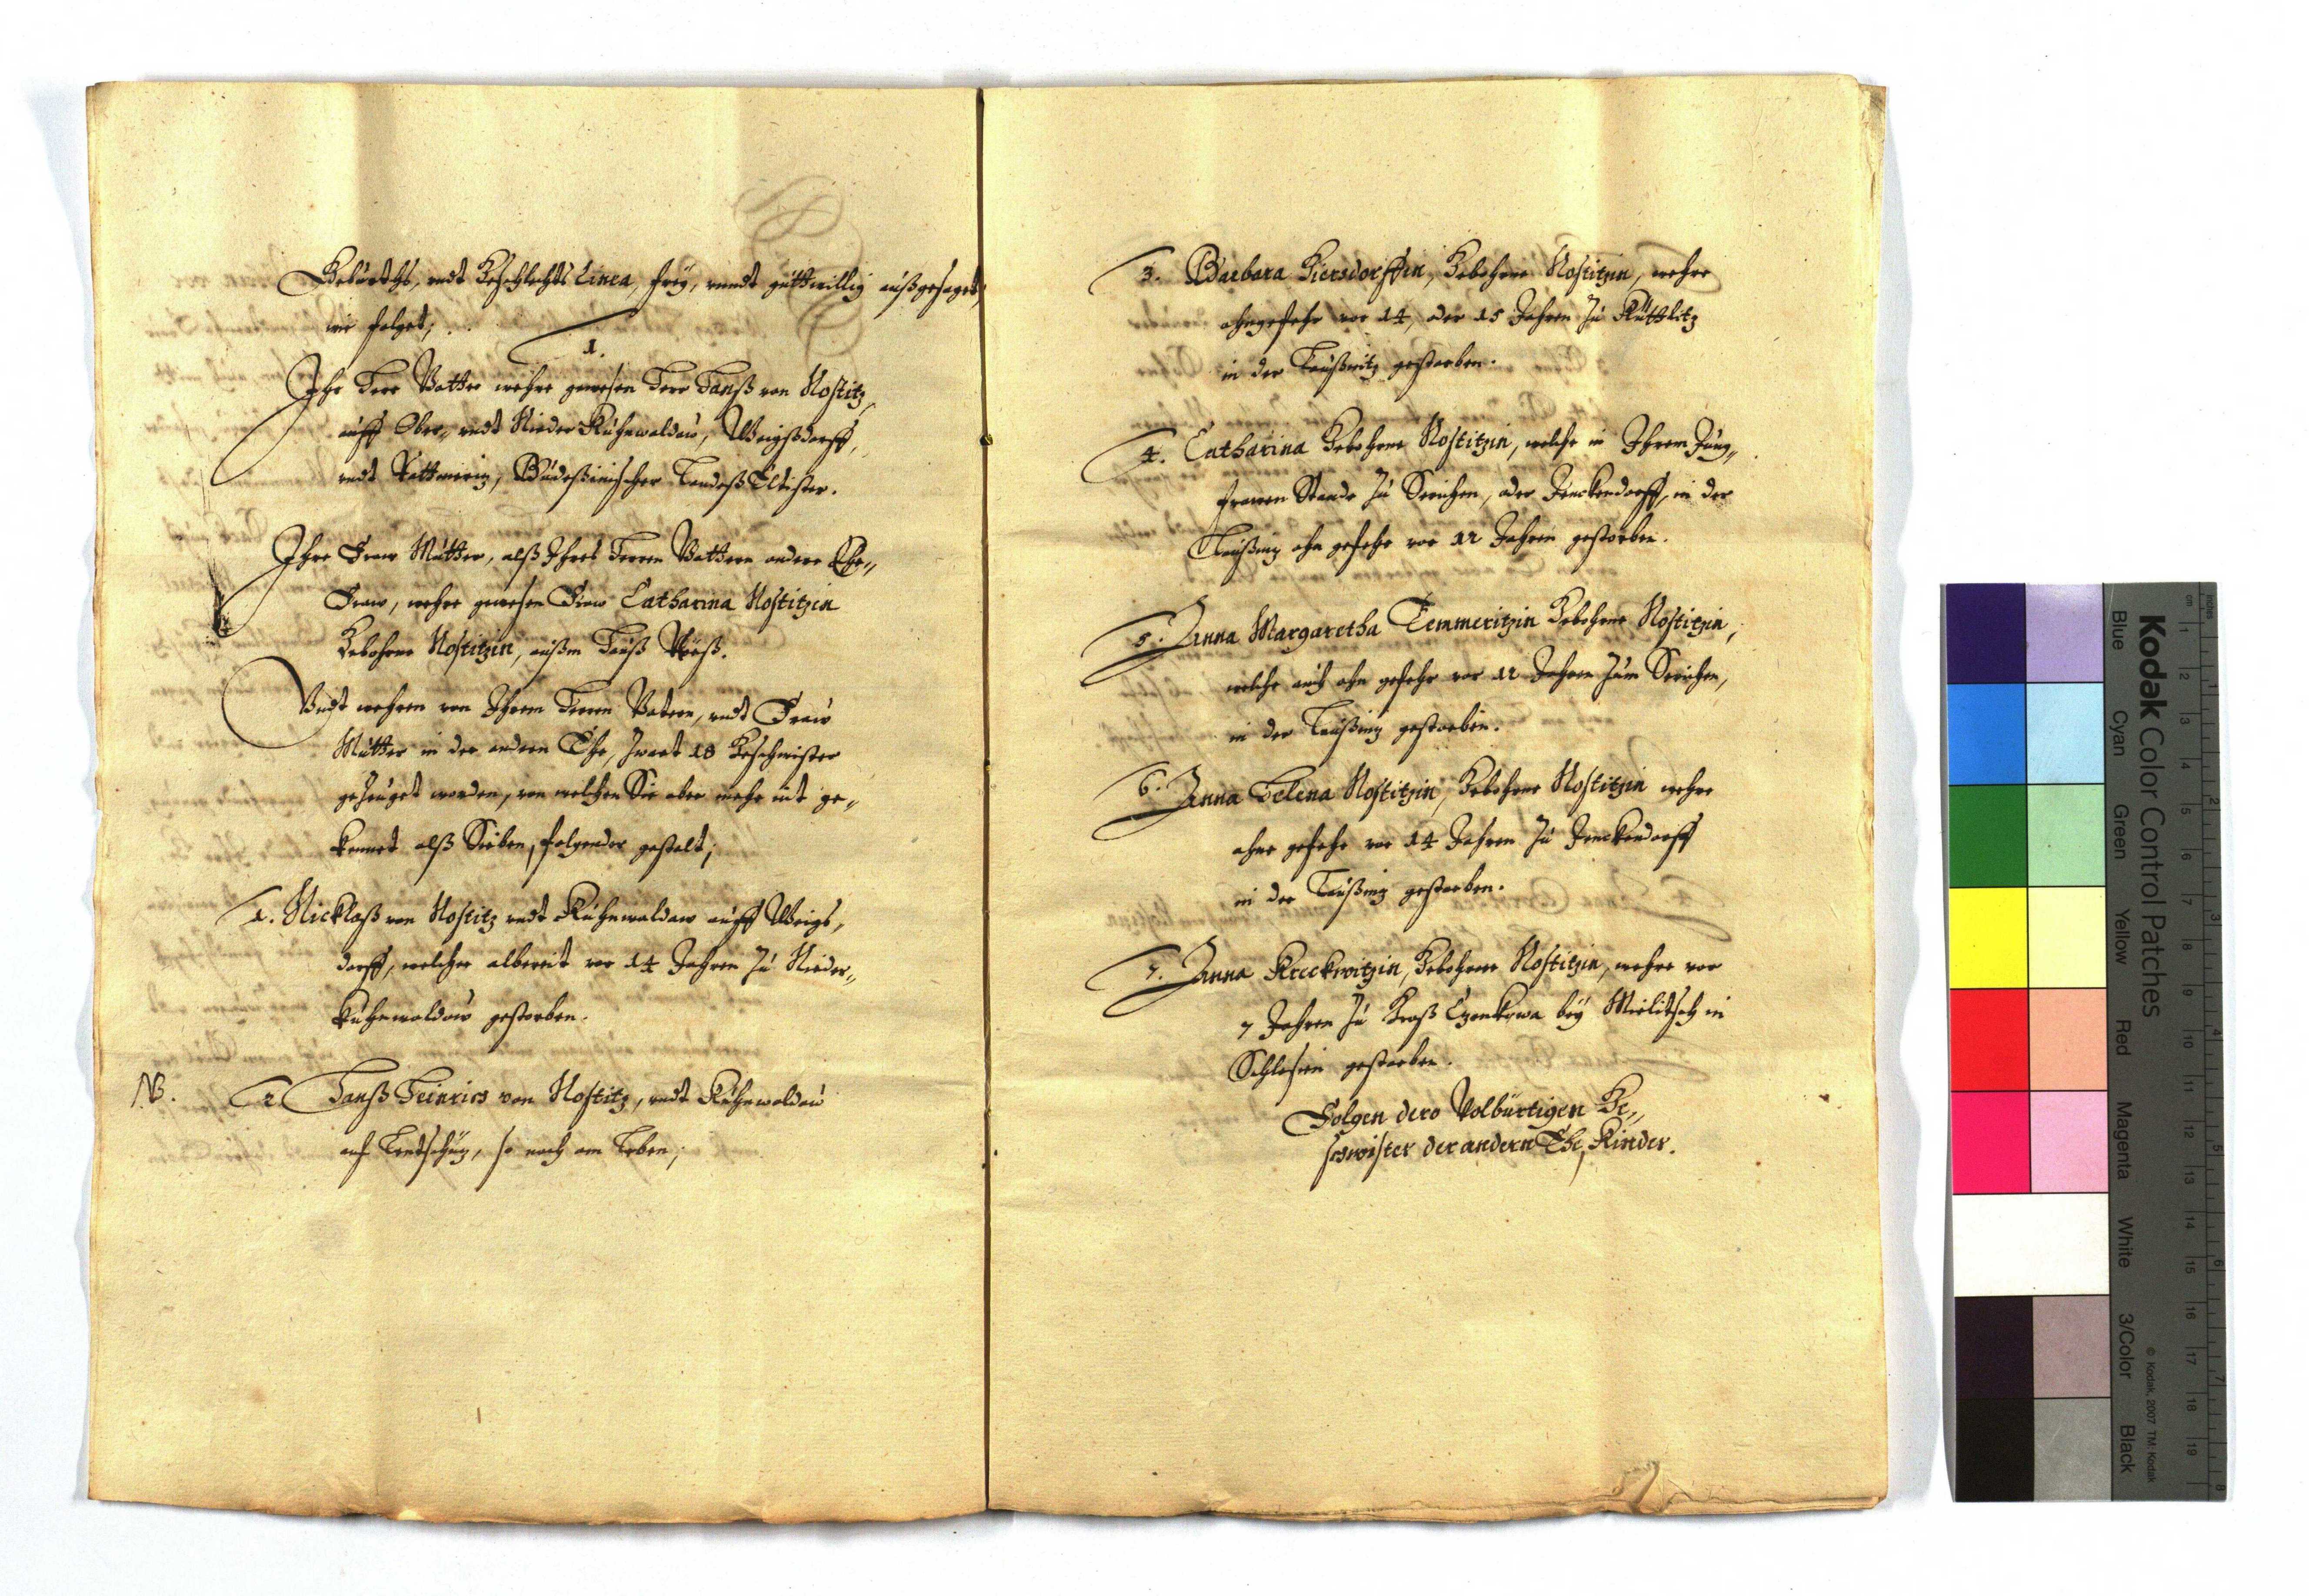 Geburths, undt Geschlechts Linea, frey, unndt guttwillig außgesaget,
wie folget;
1.
Ihr Herr Vatter wehre gewesen Herr Hanß von Nostitz,
auff Ober, undt Nieder Kuhnwaldau, Weigßdorff,
undt Budeßinischer Landeß Eltister.
Ihre Fraw Mutter, alß Ihres Herren Vattern andere Ehe„
Fraw, wehre gewesen Fraw Catharina Nostitzin
Gebohrne Nostitzin, außm Hauß
Undt wehren von Ihrem Herren Vatern, undt Fraw
Mutter in der andern Ehe, zwart 18 Geschwister
gezeuget worden, von welchen Sie aber mehr nit ge„
kennet alß Sieben, folgender gestalt;
1. Nicklaß von Nostitz undt Kuhnwaldaw auff Weigs,
dorff, welcher albereit vor 14 Jahren zu Nieder„
kuhnwaldaw gestorben.
NB. 2 Hanß Heinrich von Nostitz, undt Kuhnwaldau
auf so noch am Leben;
3. Barbara Giersdorffin, Gebohrne Nostitzin, wehre
ohngefehr vor 14, oder 15 Jahren zu Kuttlitz
in der Laußnitz gestorben.
4. Catharina Gebohrne Nostitzin, welche in Ihrem Jung„
frawen Stande zu Serichen, oder Jenckendorff, in der
Laußnitz ohn gefehr vor 12 Jahren gestorben.
5. Anna Margaretha Temmeritzin Gebohrne Nostitzin,
welche auch ohn gefehr vor 12 Jahren zum Serichen,
in der Laußnitz gestorben.
6. Anna Helena Nostitzin, Gebohrne Nostitzin wehre
ohne gefehr vor 14 Jahren zu Jenckendorff
in der Laußnitz gestorben.
7. Anna Kreckwitzin, Gebohrne Nostitzin, wehre vor
7 Jahren zu Groß bey Mielitsch in
Schlesien gestorben.
Folgen dero Volbürtigen Ge„
schwister der andern Ehe, Kinder.
Kodak Color Control Patches
Blue Cyan Green Yellow Red Magenta White 3/Color Black
© Kodak, 2007 TM: Kodak
inches 1 2 3 4 5 6 7 8
cm 1 2 3 4 5 6 7 8 9 10 11 12 13 14 15 16 17 18 19